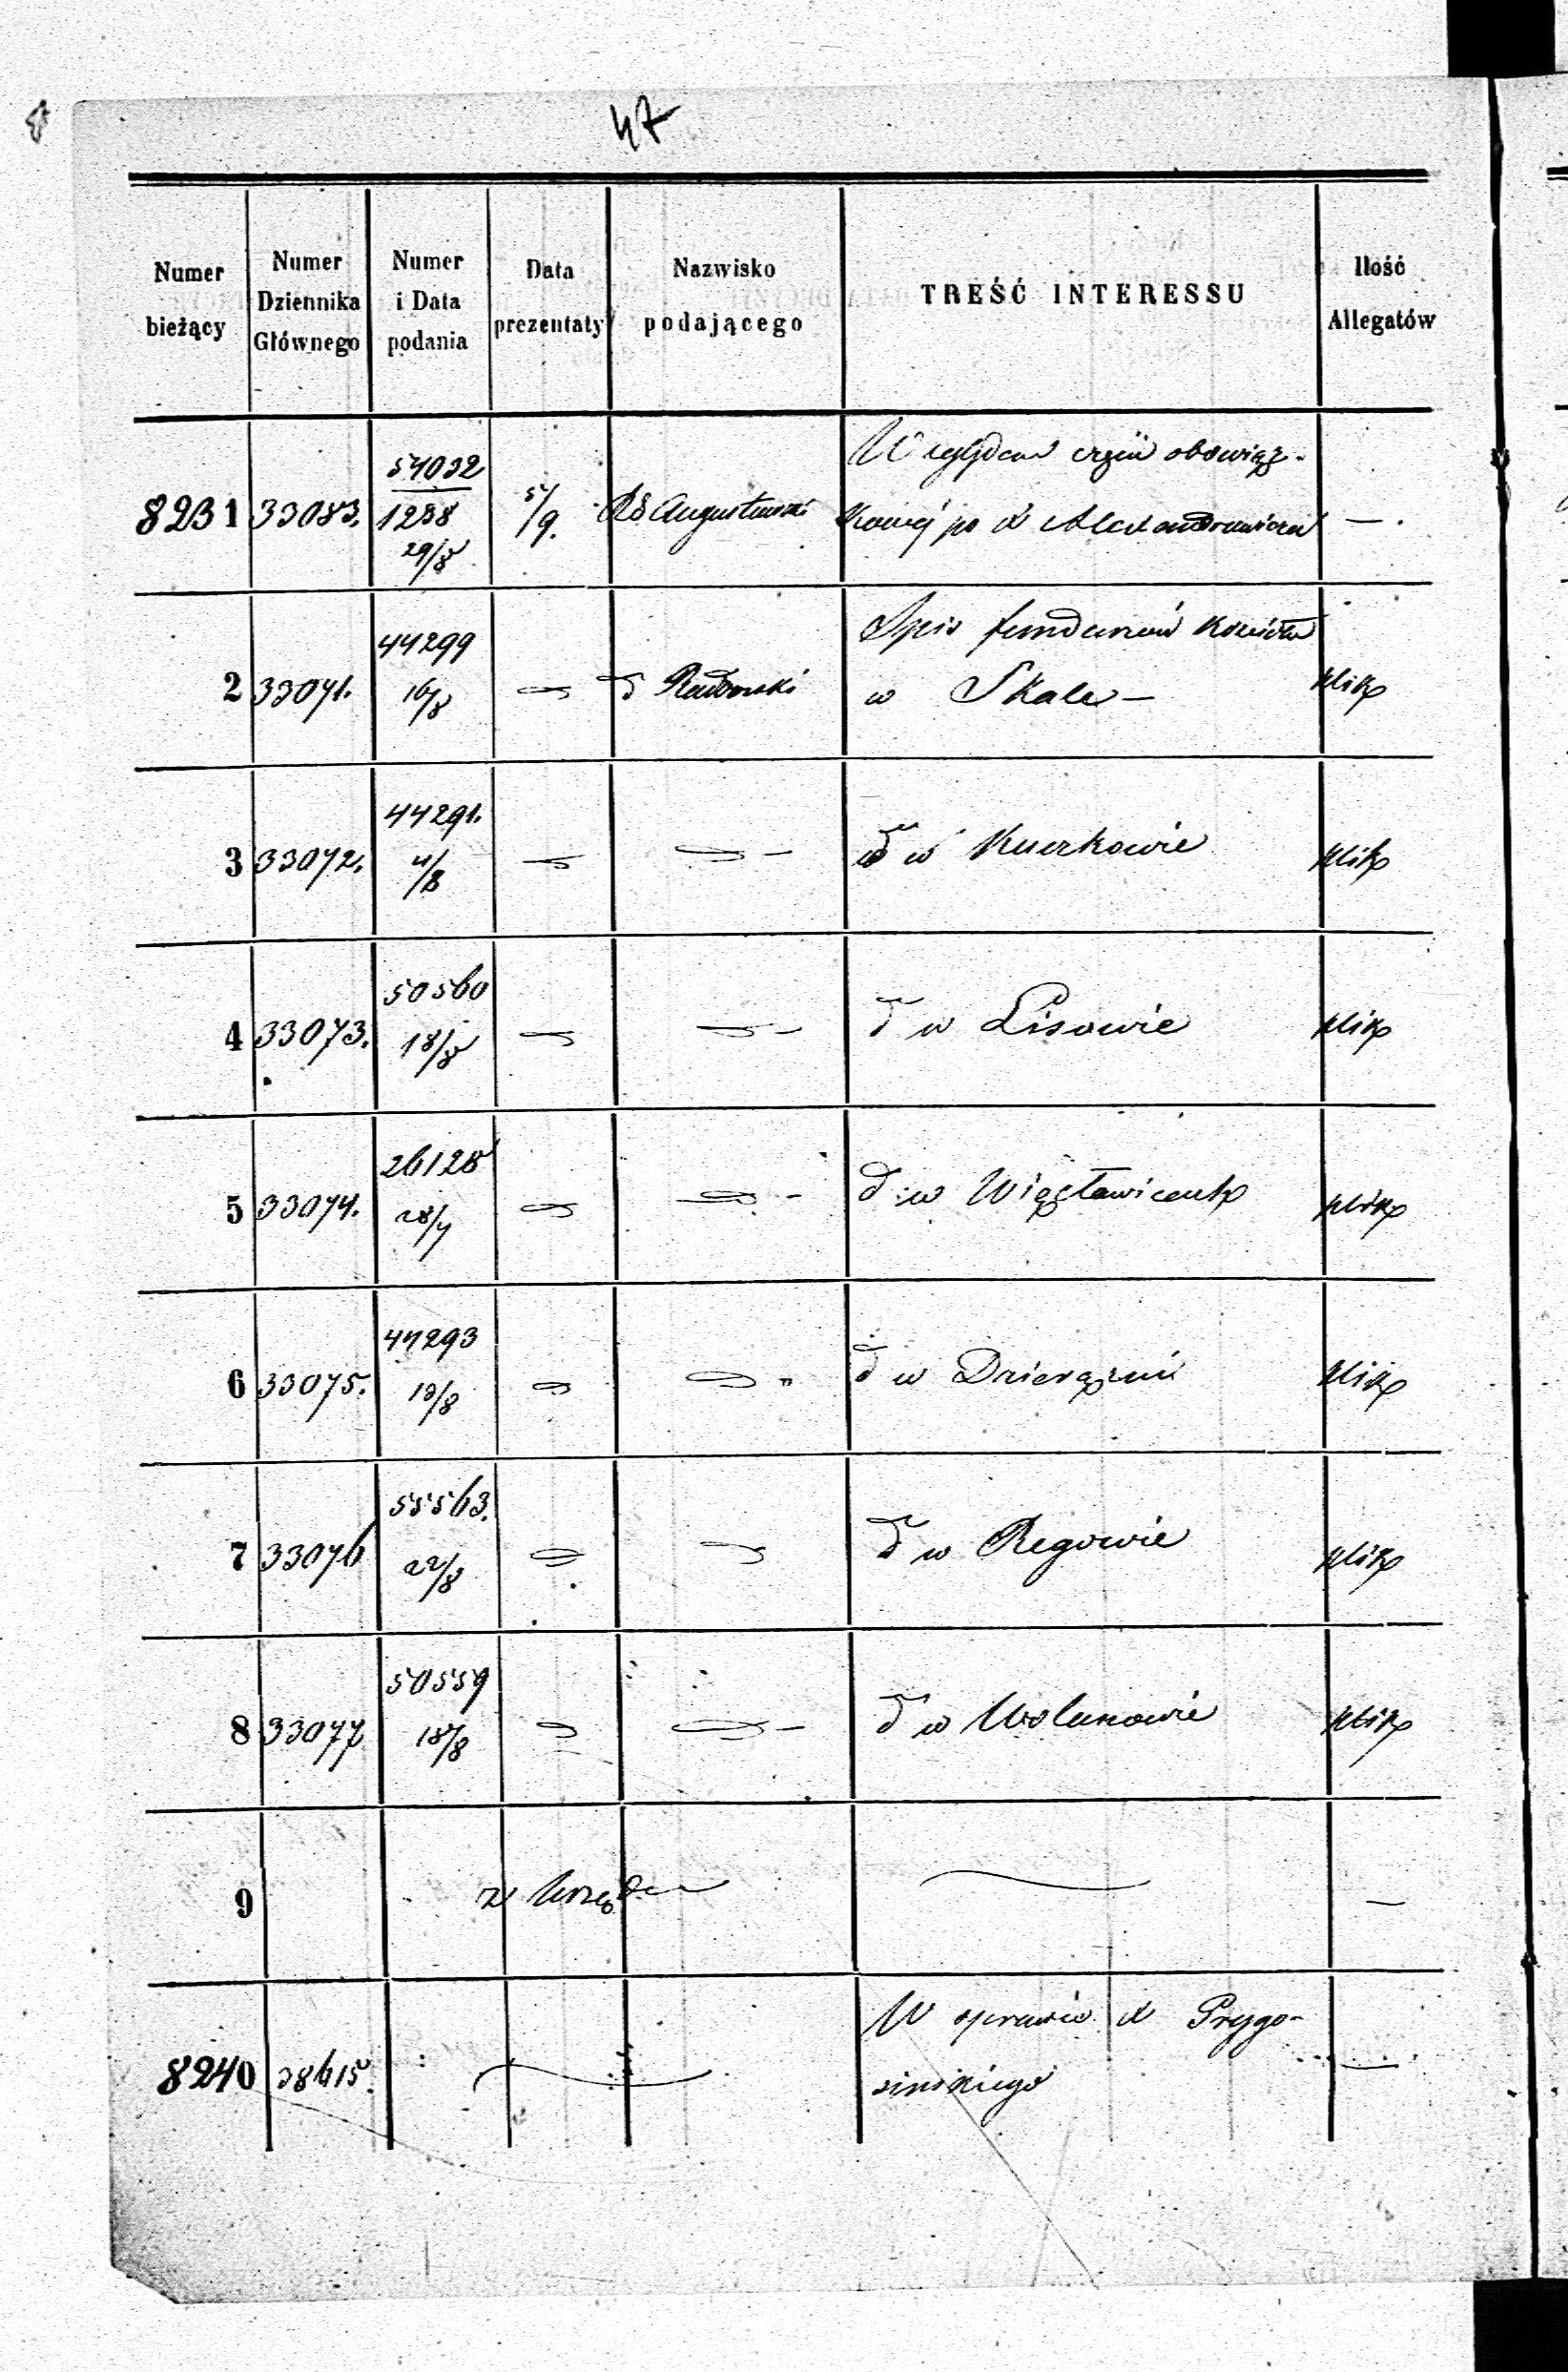 47
Numer bieżący
Numer Dziennika Głównego
Numer i Data podania
Data prezentaty
Nazwisko podającego
TREŚĆ INTERESSU
Ilość Allegatów
8231 33083. 54032 1238 29/8 5/9. Rd Augustowski W względem części obowiąz-
kowéj po X Alexandrowiczu — .
2 33071. 44299 16/8 d Radomski Spis funduszów Kościoła
w Skale — plik
3 33072. 44291. 11/8 d w Kurzkowie plik
4 33073. 50560 18/8 d w Lisowie plik
5 33074. 26128 28/7 d w Więcławicach plik
6 33075. 44293 13/8 d w Dzierążni plik
7 33076 55563. 22/8 d w Regowie plik
8 33077 50559 18/8 d w Wolanowie plik
9 z Urzędu —
8240 W sprawie X Przygo-
sińskiego —